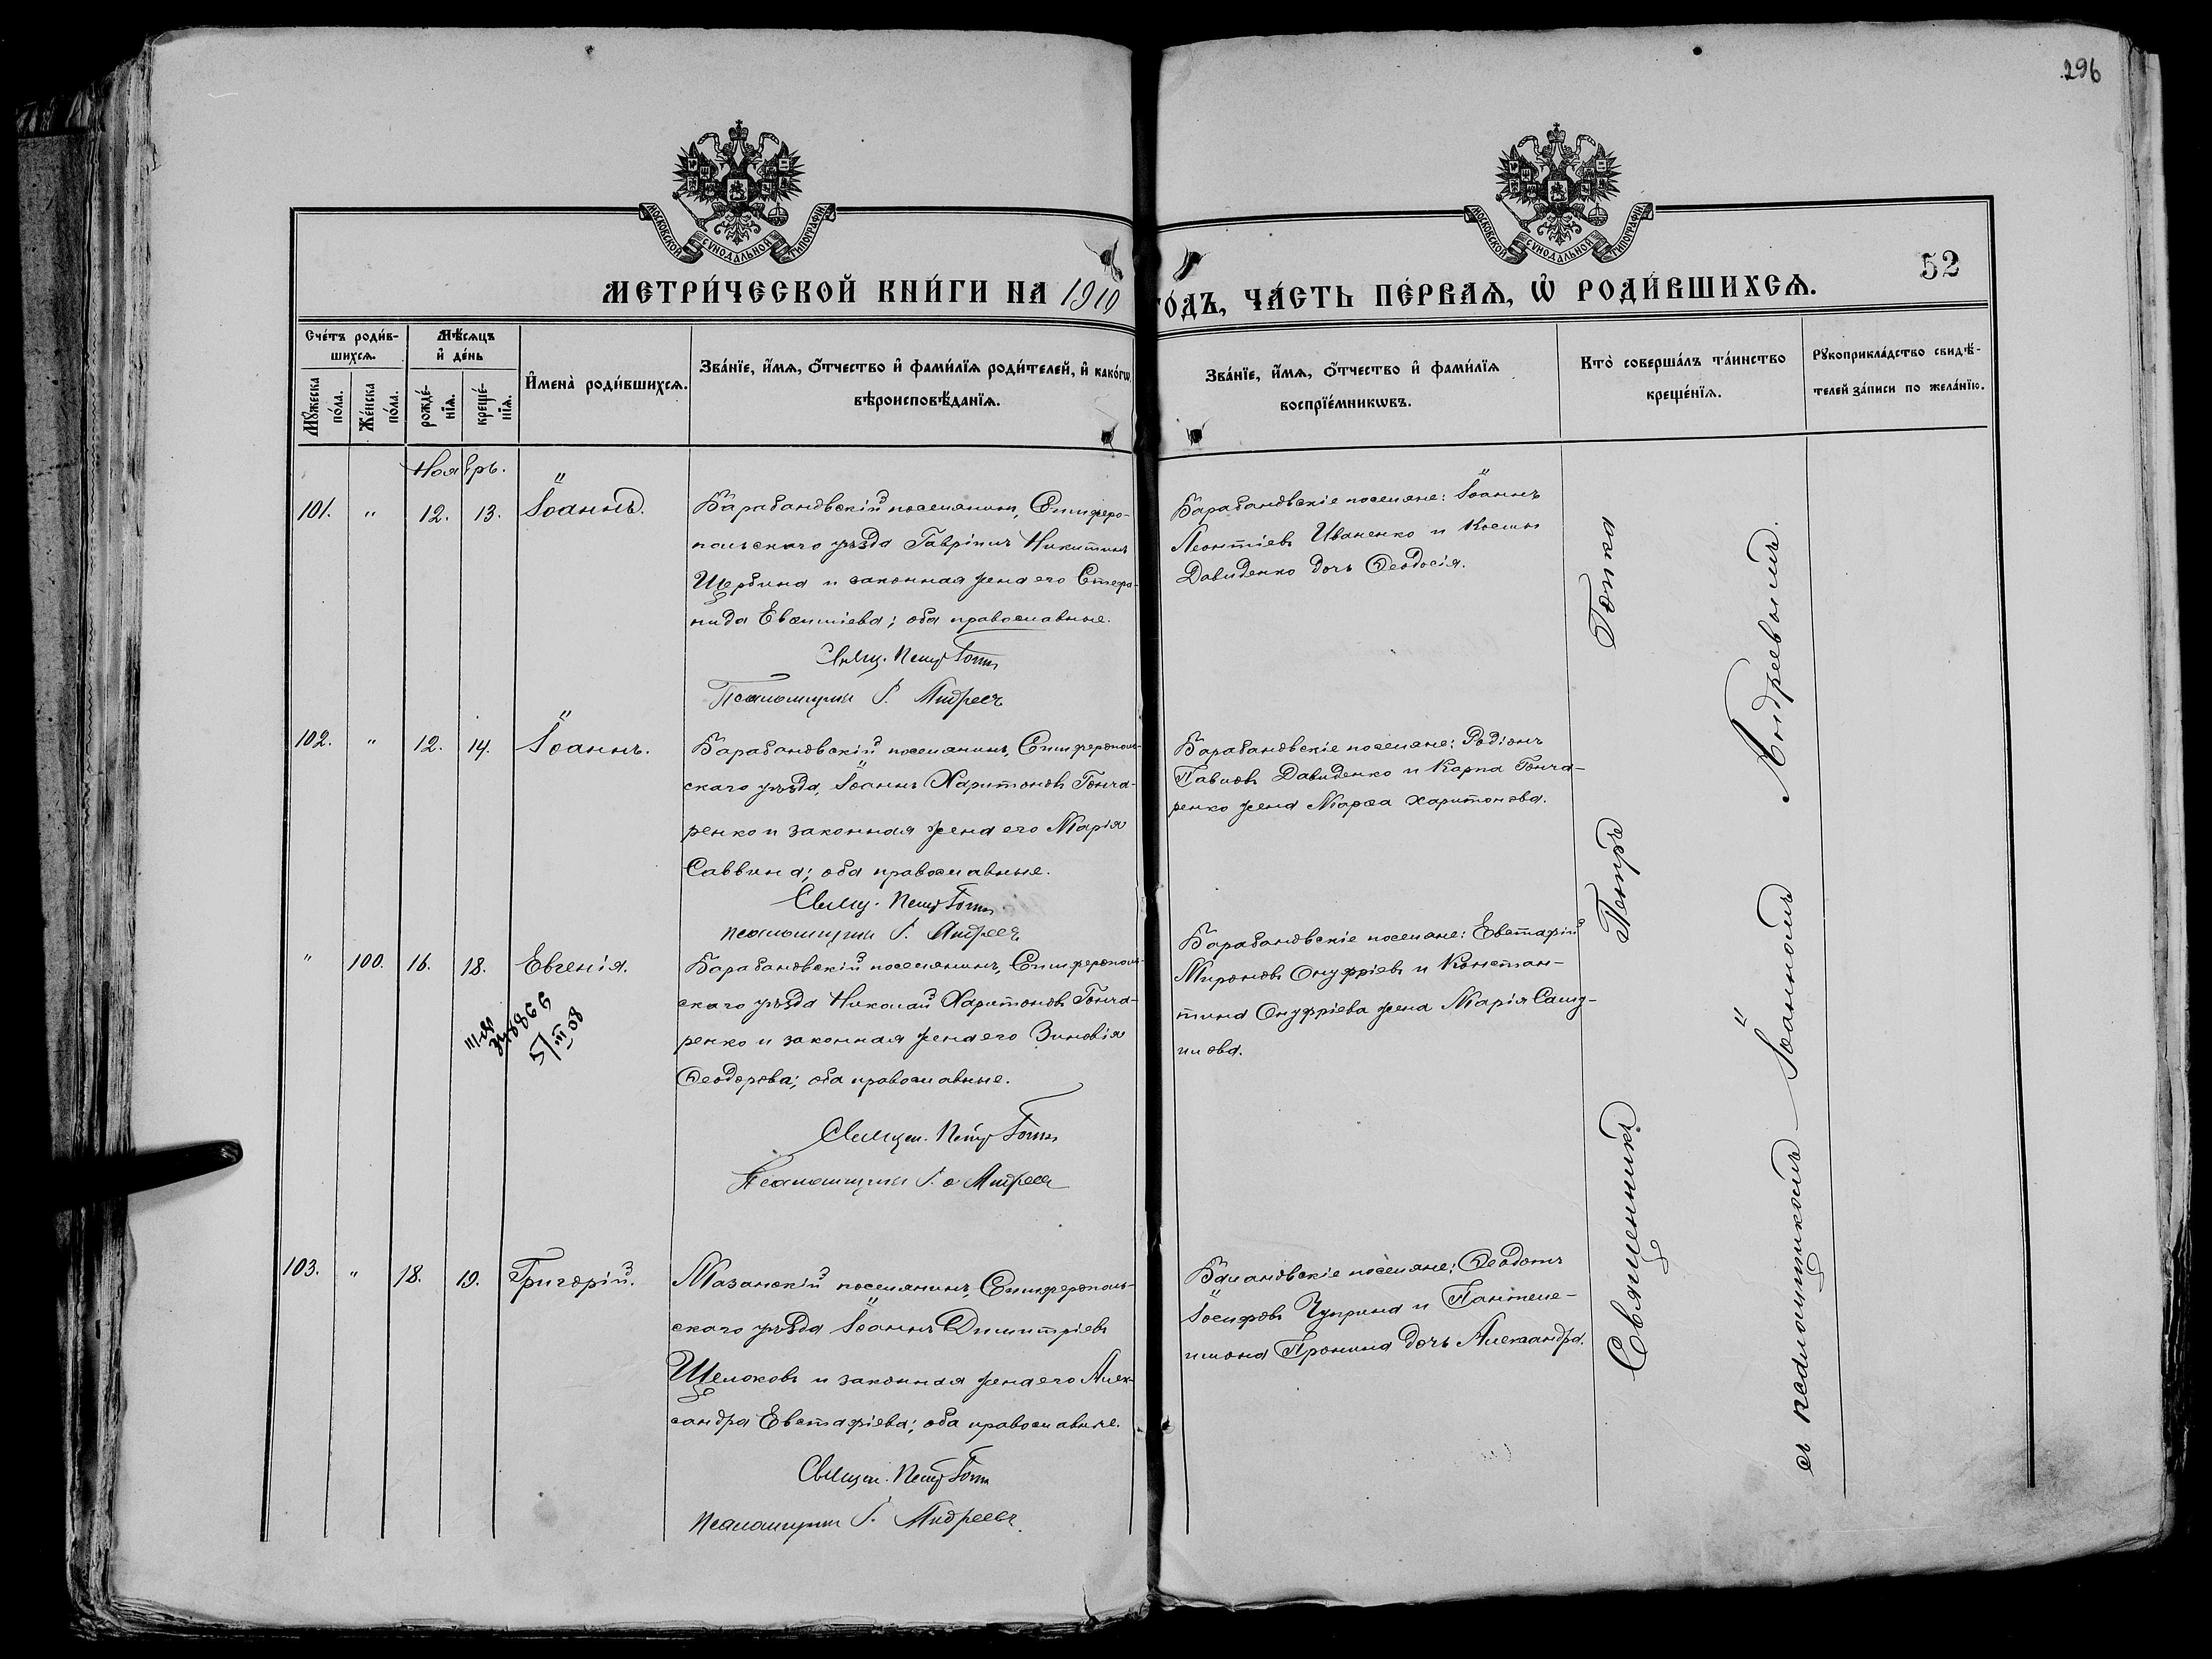 296
МОСКОВСКОЙ СѴНОДАЛЬНОЙ ТИПОГРАФІИ
МОСКОВСКОЙ СѴНОДАЛЬНОЙ ТИПОГРАФІИ
52
МЕТРИ́ЧЕСКОЙ КНИ́ГИ НА 1910 ГО́ДЪ, ЧА́СТЬ ПЕ́РВАѦ, Ѡ҆ РОДИ́ВШИХСѦ.
Сче́тъ роди́в-
шихсѧ.
Мꙋ́жеска по́ла.
Же́нска по́ла.
Мѣ́сѧцъ
и҆ де́нь
рожде́-
нїѧ.
креще́-
нїѧ.
И҆мена̀ роди́вшихсѧ.
Зва́нїе, и҆́мѧ, ѻ҆́тчество и҆ фами́лїѧ роди́телей, и҆ како́гѡ
вѣроисповѣ́данїѧ.
Зва́нїе, и҆́мѧ, ѻ҆́тчество и҆ фами́лїѧ
воспрїе́мникѡвъ.
Кто̀ соверша́лъ та́инство
креще́нїѧ.
Рꙋкоприкла́дство свидѣ́-
телей за́писи по жела́нїю.
Ноябрь.
101. " 12. 13. Іоаннъ.
Барабановскій поселянин, Симферо-
польскаго уѣзда Гавріилъ Никитинъ
Щербина и законная жена его Стефа-
нида Евсиміева; оба православные.
Свящ. Петр Гопка
Псаломщикъ І. Андреевъ
Барабановскіе поселяне: Іоаннъ
Леонтіевъ Иваненко и Косьмы
Давиденко дочь Ѳеодосія.
102. " 12. 14. Іоаннъ.
Барабановскій поселянинъ, Симферополь-
скаго уѣзда, Іоаннъ Харитоновъ Гонча-
ренко и законная жена его Марія
Саввина; оба православные.
Свящ. Петр Гопка
псаломщикъ І. Андреевъ
Барабановскіе поселяне: Родіонъ
Павловъ Давиденко и Карпа Гонча-
ренко жена Марѳа Харитонова.
" 100. 16. 18. Евгенія.
5/III 08
Барабановскій поселянинъ, Симферополь-
скаго уѣзда Николай Харитоновъ Гонча-
ренко и законная жена его Зиновія
Ѳеодорова; оба православные.
Священ. Петр Гопка
Псаломщикъ І. Андреевъ
Барабановскіе поселяне: Евстафій
Мироновъ Онуфріевъ и Констан-
тина Онуфріева жена Марія Саму-
илова.
103. " 18. 19. Григорій.
Мазанскій поселянинъ, Симферополь-
скаго уѣзда Іоаннъ Димитріевъ
Щелоковъ и законная жена его Алек-
сандра Евстафіева; оба православные.
Священ. Петр Гопка
псаломщикъ І. Андреевъ.
Балановскіе поселяне: Ѳеодотъ
Іосифовъ Чуприна и Пантеле-
имона Пронина дочь Александра.
Священникъ Петръ Гопка
съ псаломщикомъ Іоанномъ Андреевымъ.